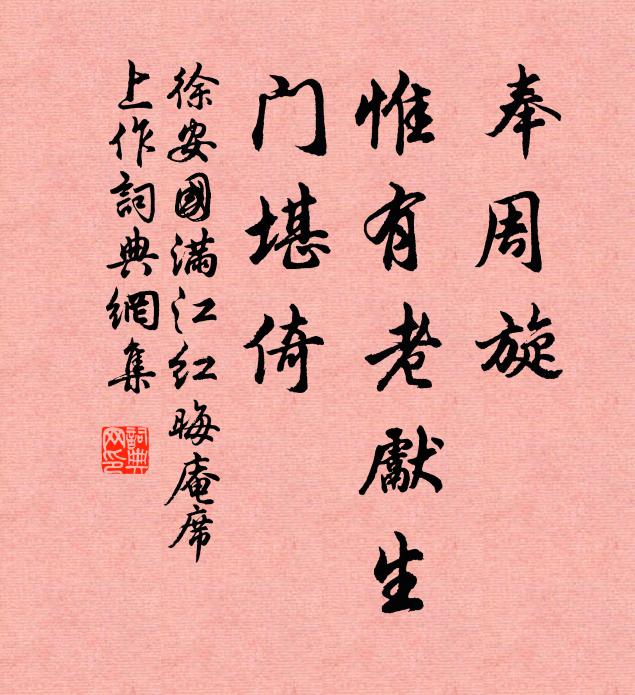 奉周旋
惟有老獻生
门堪倚
徐安國满江红晦庵席
上作詞典網集
詞典
网印